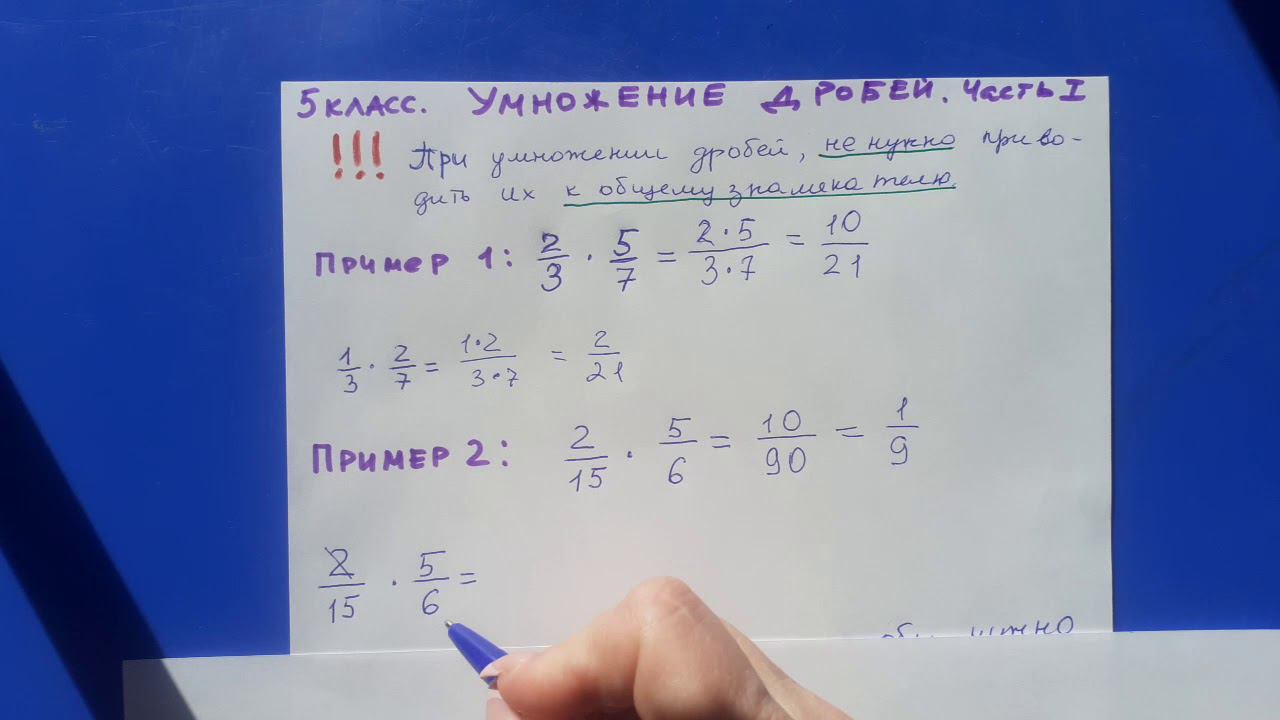 5 КЛАСС. УМНОЖЕНИЕ ДРОБЕЙ. Часть I
!!! При умножении дробей, не нужно приво-
дить их к общему знаменателю.
Пример 1: 2/3 · 5/7 = 2·5/3·7 = 10/21
1/3 · 2/7 = 1·2/3·7 = 2/21
Пример 2: 2/15 · 5/6 = 10/90 = 1/9
2/15 · 5/6 =